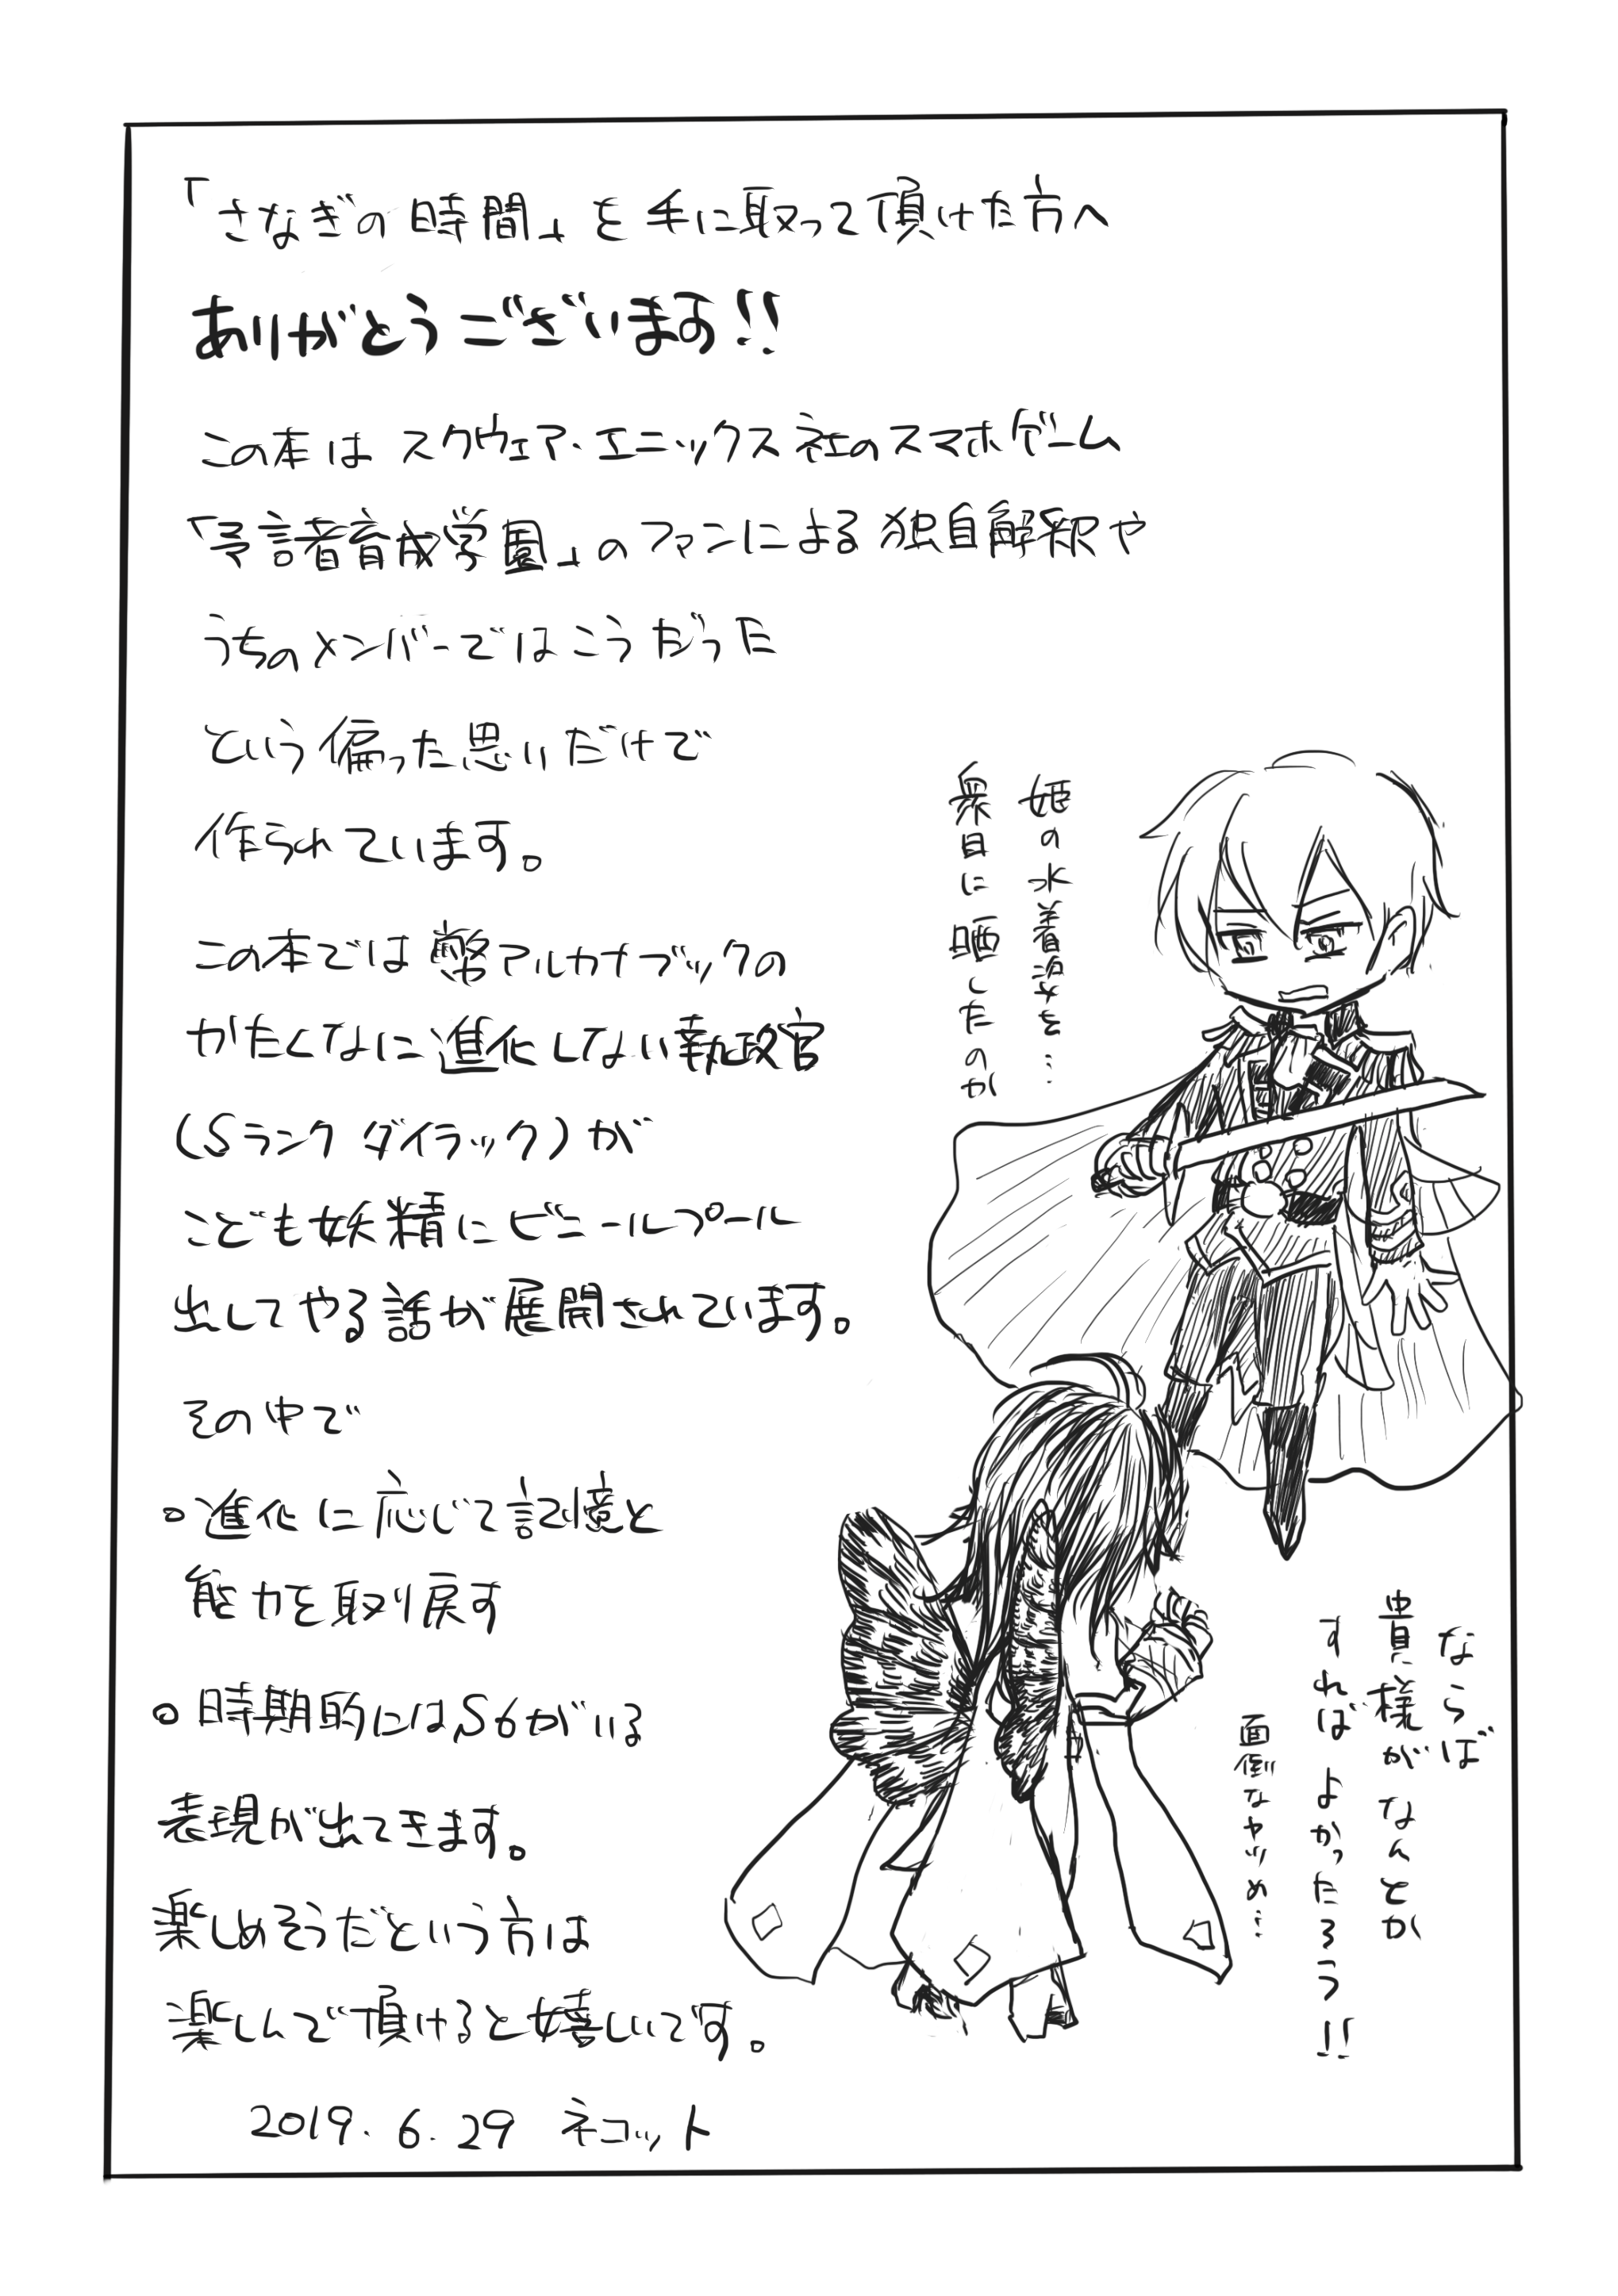 「さなぎの時間」を手に取って頂けた方へ
ありがとうございます!!
この本はスクウェア・エニックス社のスマホゲーム
「予言者育成学園」のファンによる独自解釈や
うちのメンバーではこうだった
という偏った思いだけで
作られています。
この本では弊アルカナブックの
かたくなに進化しない執政官
(Sランク ダイラック)が
こども妖精にビニールプール
出してやる話が展開されています。
その中で
○進化に応じて記憶と
能力を取り戻す
○時期的にはS6がいる
表現が出てきます。
楽しめそうだという方は
楽しんで頂けると嬉しいです。
2019.6.29 ネコット
姫の水着姿を…
衆目に晒したのか
ならば
貴様がなんとか
すればよかったろう!!
面倒なヤツめ…